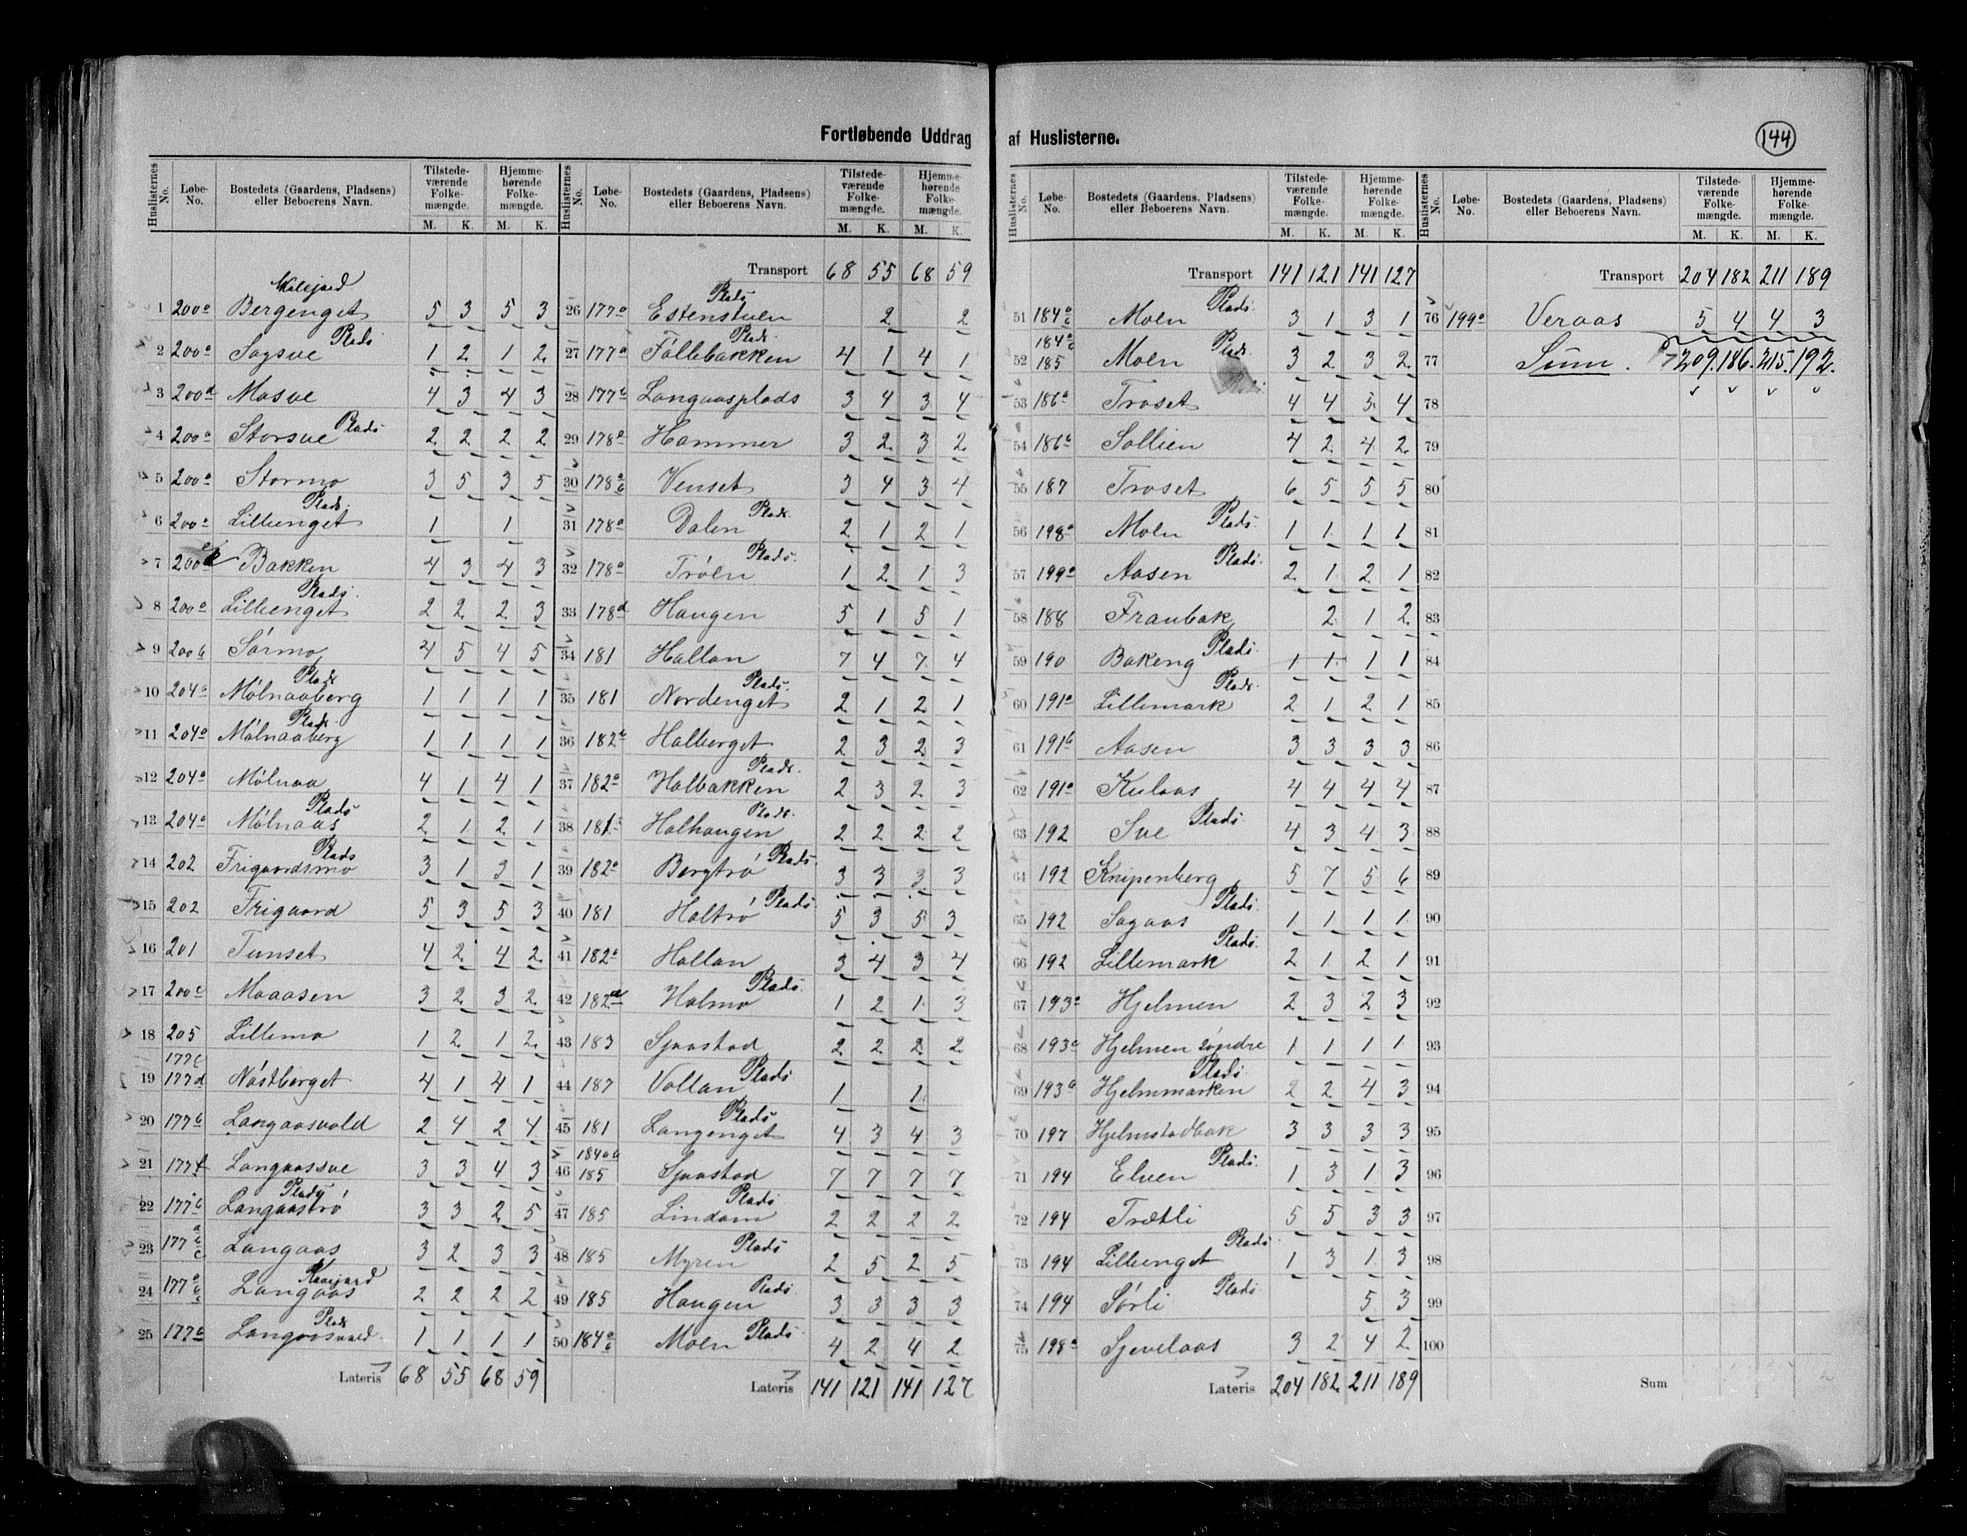 Fortløbende Uddrag af Huslisterne.
144
Huslisternes No. Løbe-No. Bostedets (Gaardens, Pladsens) eller Beboerens Navn. Tilstedeværende Folkemængde. M. K. Hjemmehørende Folkemængde. M. K.
1 200a Bergenget 5 3 5 3
2 200a Sagsve Plads 1 2 1 2
3 200d Mosve 4 3 4 3
4 200a Storsve Plads 2 2 2 2
5 200a Stormo 3 5 3 5
6 200a Lillenget Plads 1 1
7 200 Bakken 4 3 4 3
8 200a Lillenget Plads 2 2 2 3
9 200b Sørmo 4 5 4 5
10 204a Mølnaaberg Plads 1 1 1 1
11 204a Mølnaaberg Plads 1 1 1 1
12 204a Mølnaa 4 1 4 1
13 204a Mølnaas Plads 2 1 2 1
14 202 Frigaardsmo Plads 3 1 3 1
15 202 Frigaard 5 3 5 3
16 201 Tunset 4 2 4 2
17 200c Moaasen 3 2 3 2
18 205 Lillemo 1 2 1 2
19 177c 177d Nøstberget 4 1 4 1
20 177b Langaasvold 2 4 2 4
21 177f Langaassve 3 3 4 3
22 177b Langaastrø Plads 3 3 2 5
23 177 a b c Langaas 3 2 3 3
24 177 a b c Langaas 2 2 2 2
25 177a Langaasvold Plads 1 1 1 1
Lateris 68 55 68 59
Huslisternes No. Løbe-No. Bostedets (Gaardens, Pladsens) eller Beboerens Navn. Tilstedeværende Folkemængde. M. K. Hjemmehørende Folkemængde. M. K.
Transport 68 55 68 59
26 177a Estenstuen Plads 2 2
27 177a Føllebakken Plads 4 1 4 1
28 177b Langaasplads 3 4 3 4
29 178a Hammer 3 2 3 2
30 178a b Venset 3 4 3 4
31 178a Dalen Plads 2 1 2 1
32 178a Trøen Plads 1 2 1 3
33 178d Haugen 5 1 5 1
34 181 Hallan 7 4 7 4
35 181 Nordenget Plads 2 1 2 1
36 182b Halberget 2 3 2 3
37 182a Halbakken Plads 2 3 2 3
38 181 Halhaugen Plads 2 2 2 2
39 182a Bergtrø Plads 3 3 3 3
40 181 Haltrø Plads 5 3 5 3
41 182a Hallan 3 4 3 4
42 182d Halmo Plads 1 2 1 3
43 183 Sjaastad 2 2 2 2
44 187 Vollan Plads 1 1
45 181 Langenget Plads 4 3 4 3
46 184ab 185 Sjaastad 7 7 7 7
47 185 Lindam Plads 2 2 2 2
48 185 Myren Plads 2 5 2 5
49 185 Haugen Plads 3 3 3 3
50 184a b Moen Plads 4 2 4 2
Lateris 141 121 141 127
Huslisternes No. Løbe-No. Bostedets (Gaardens, Pladsens) eller Beboerens Navn. Tilstedeværende Folkemængde. M. K. Hjemmehørende Folkemængde. M. K.
Transport 141 121 141 127
51 184a b Moen Plads 3 1 3 1
52 184a b 185 Moen Plads 3 2 3 2
53 186a Troset 4 4 5 4
54 186a Sollien 4 2 4 2
55 187 Troset 6 5 5 5
56 198a Moen Plads 1 1 1 1
57 199a Aasen Plads 2 1 2 1
58 188 Fraubak 2 1 2
59 190 Bakeng Plads 1 1 1 1
60 191a Lillemark Plads 2 1 2 1
61 191b Aasen 3 3 3 3
62 191a Kulaas 4 4 4 4
63 192 Sve Plads 4 3 4 3
64 192 Knipenberg 5 7 5 6
65 192 Sagaas Plads 1 1 1 1
66 192 Lillemark Plads 2 1 2 1
67 193a Hjelmen 2 3 2 3
68 193a Hjelmen søndre 1 1 1 1
69 193b Hjelmmarken Plads 2 2 4 3
70 197 Hjelmstadbak 3 3 3 3
71 194 Elven Plads 1 3 1 3
72 194 Trætli 5 5 3 3
73 194 Lillenget Plads 1 3 1 3
74 194 Sørli Plads 5 3
75 198a Sjevelaas 3 2 4 2
Lateris 204 182 211 189
Huslisternes No. Løbe-No. Bostedets (Gaardens, Pladsens) eller Beboerens Navn. Tilstedeværende Folkemængde. M. K. Hjemmehørende Folkemængde. M. K.
Transport 204 182 211 189
76 199a Veraas 5 4 4 3
77 Sum. 209. 186. 215. 192.
78
79
80
81
82
83
84
85
86
87
88
89
90
91
92
93
94
95
96
97
98
99
100
Sum